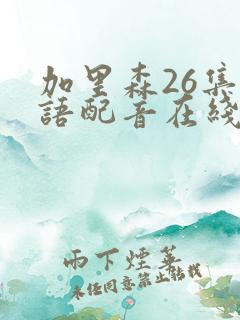 加里森26集
語配音在綫
雨下煙華
未经同意禁止转载